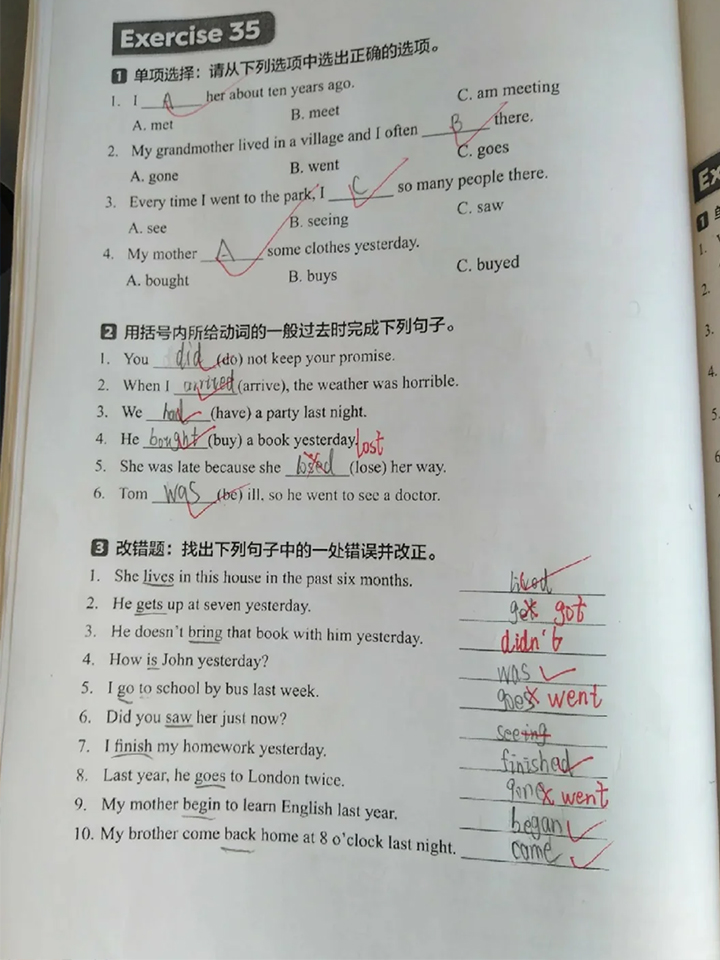 Exercise 35
1 单项选择：请从下列选项中选出正确的选项。
1. I A her about ten years ago.
A. met B. meet C. am meeting
2. My grandmother lived in a village and I often B there.
A. gone B. went C. goes
3. Every time I went to the park, I C so many people there.
A. see B. seeing C. saw
4. My mother A some clothes yesterday.
A. bought B. buys C. buyed
2 用括号内所给动词的一般过去时完成下列句子。
1. You did (do) not keep your promise.
2. When I arrived (arrive), the weather was horrible.
3. We had (have) a party last night.
4. He bought (buy) a book yesterday. lost
5. She was late because she losed (lose) her way.
6. Tom was (be) ill, so he went to see a doctor.
3 改错题：找出下列句子中的一处错误并改正。
1. She lives in this house in the past six months. lived
2. He gets up at seven yesterday. got
3. He doesn't bring that book with him yesterday. didn't
4. How is John yesterday? was
5. I go to school by bus last week. goes went
6. Did you saw her just now? seeing
7. I finish my homework yesterday. finished
8. Last year, he goes to London twice. gone went
9. My mother begin to learn English last year. began
10. My brother come back home at 8 o'clock last night. came
Ex
1
1.
2.
3.
4.
5.
6